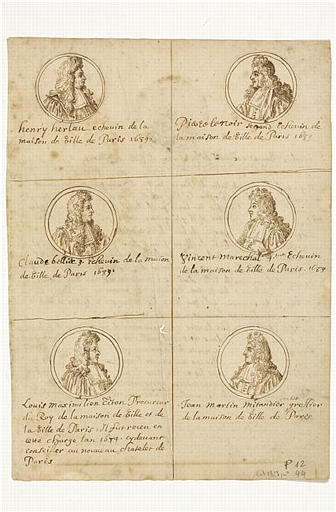 henry herlau echevin de la
maison de Ville de Paris 1689.
Pierre lenoir segond Echevin de
la maison de Ville de Paris 1689
Claude bellier 3e echevin de la maison
de Ville de Paris 1689.
Vincent Marechal Echevin
de la maison de Ville de Paris. 1689
Louis Maximilien titon Procureur
du Roy de la maison de Ville et de
la Ville de Paris. Il fut receu en
charge lan 1684. cydevant
conseiller au nouveau chatelet de
Paris
Jean Martin Mitandier greffier
de la maison de Ville de Paris
P 12
94